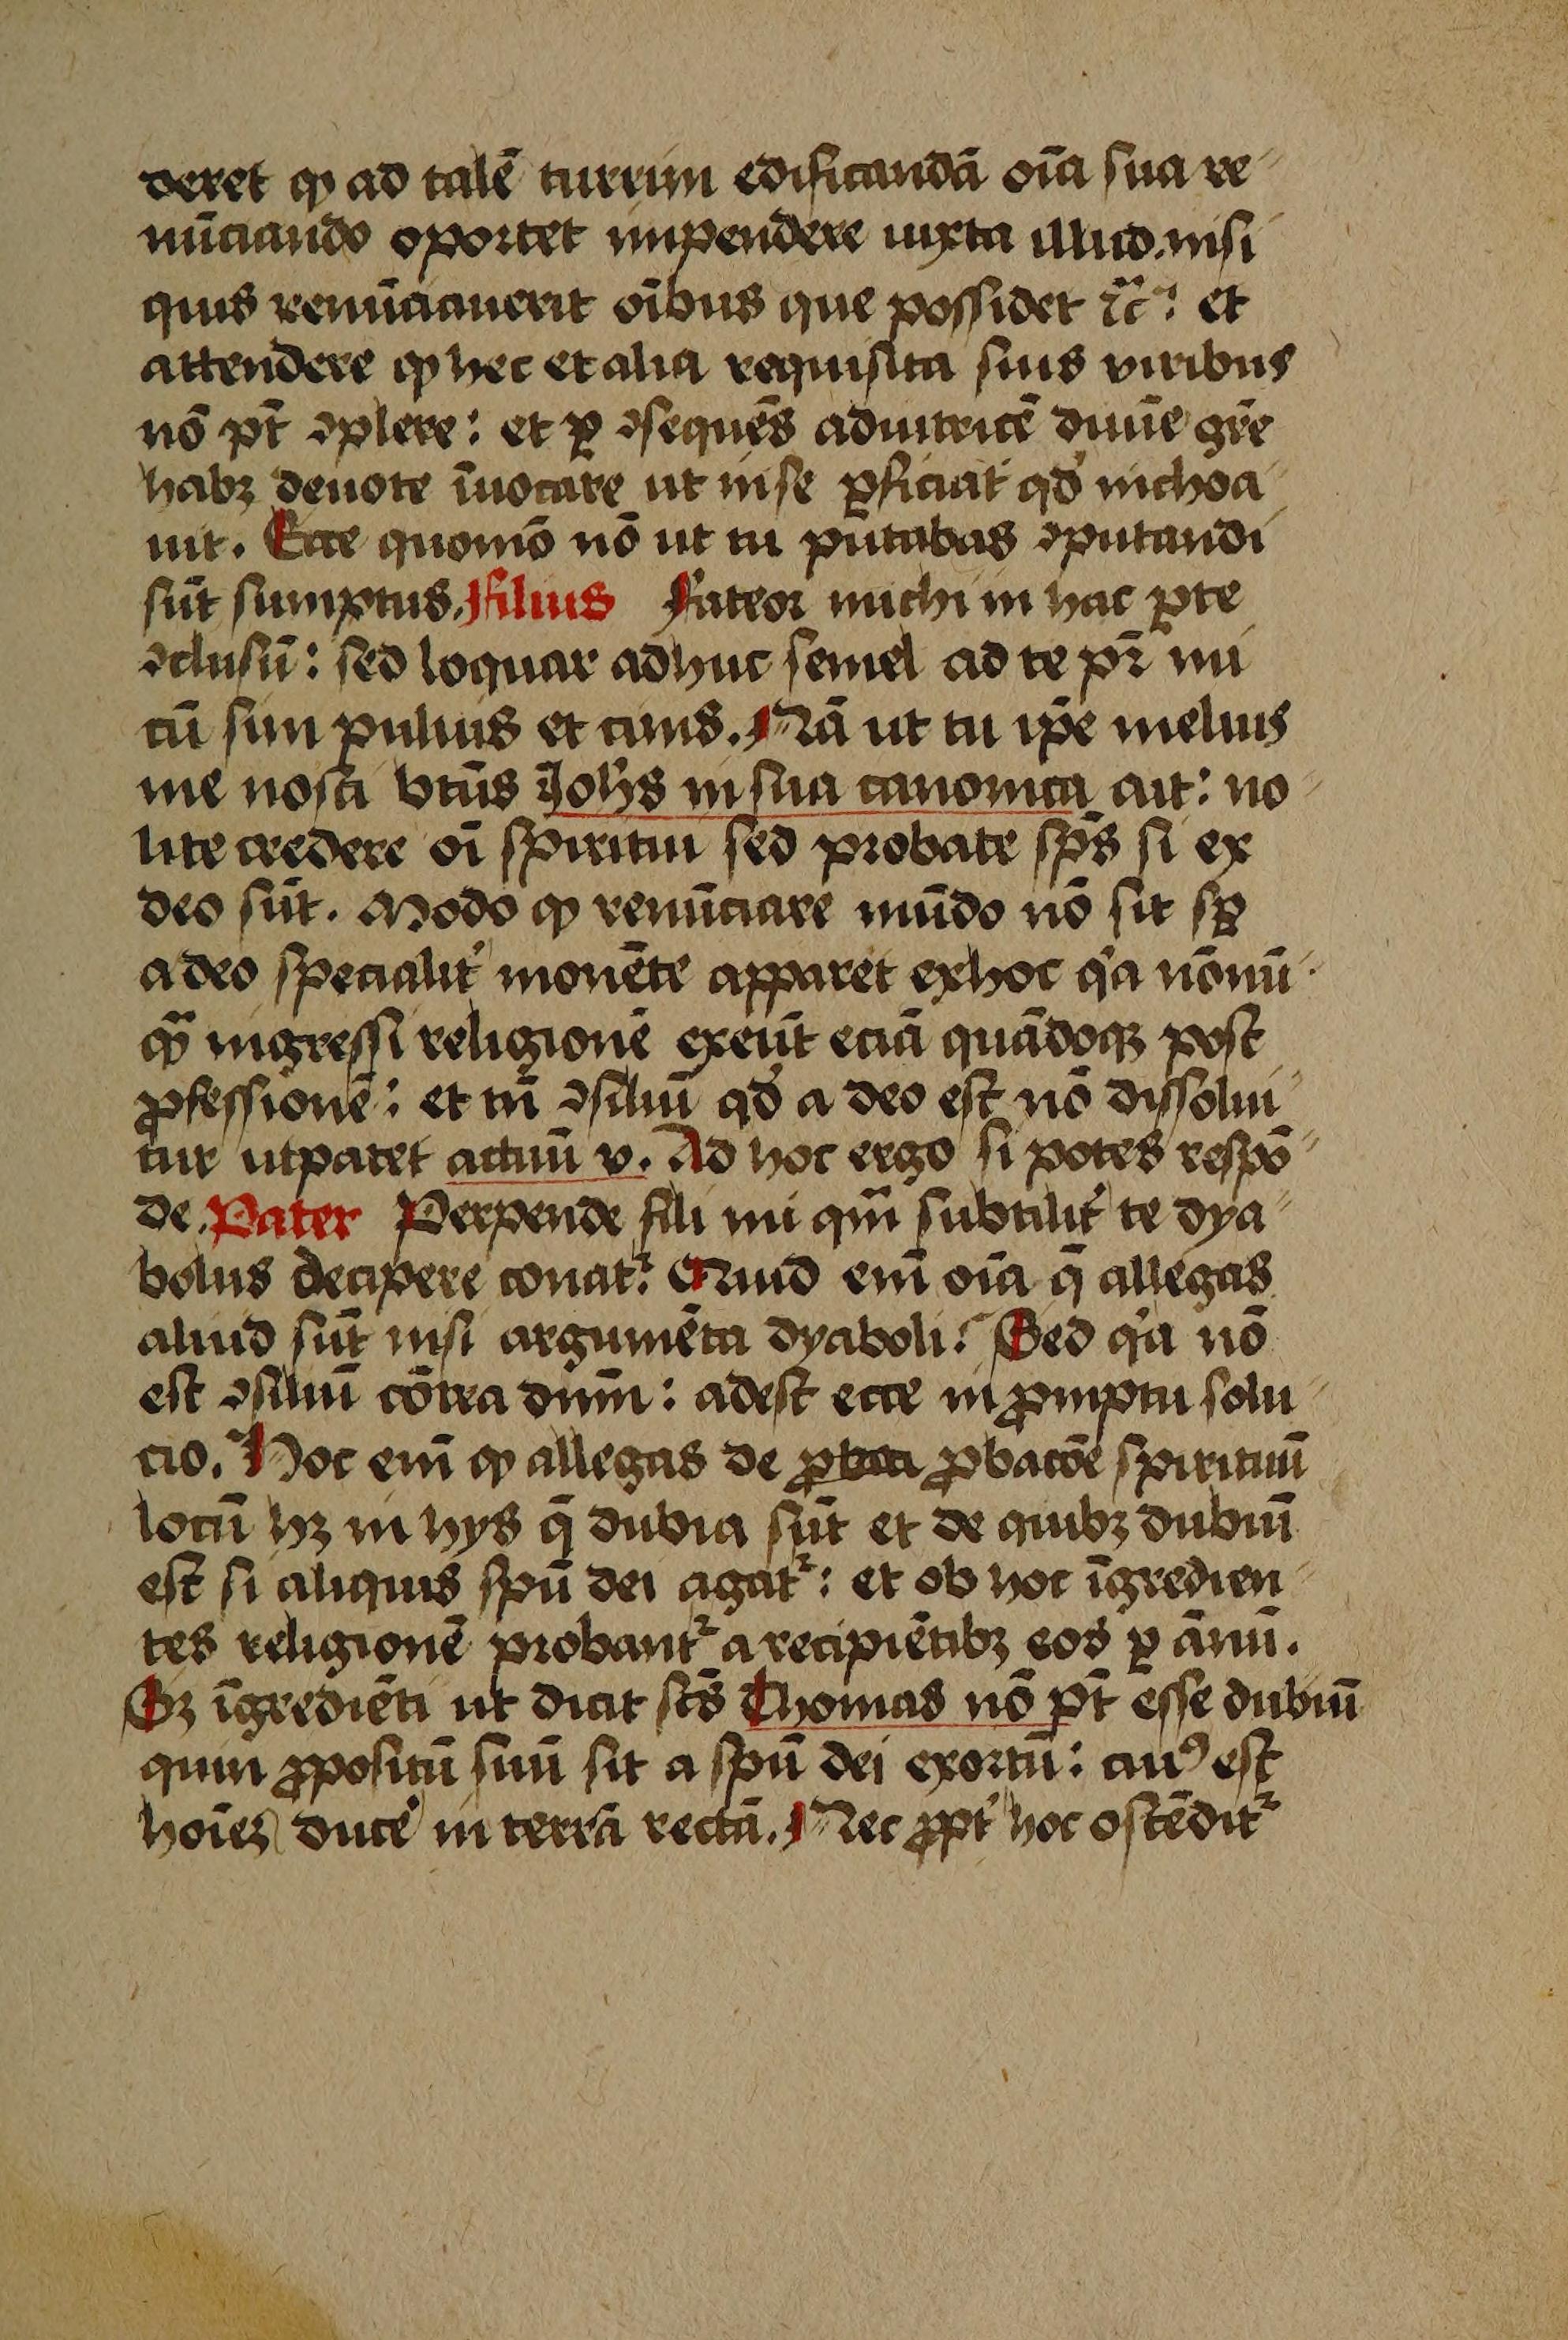 deret ꝙ ad talē turrim edificandā oīa sua re-
nūciando oportet impendere iuxta illud. nisi
quis renūciauerit oībus que possidet ⁊c̄: et
attendere ꝙ hec et alia requisita suis viribus
nō pt̄ ꝯplere: et ꝑ ꝯsequēs adiutricē diuīe gr̄e
habꝫ deuote īuocare ut in se ꝑficiat qd̓ inchoa-
uit. Ecce quomō nō ut tu putabas ꝯputandi
sūt sumptus. Filius Fateor michi in hac ꝑte
ꝯclusū: sed loquar adhuc semel ad te pr̄ mi
cū sim puluis et cinis. Nā ut tu ip̄e melius
me nosti bt̄us Joh̄s in sua canonica ait: no-
lite credere oī spiritui sed probate sp̄s si ex
deo sūt. Modo ꝙ renūciare mūdo nō sit sꝑ
a deo specialit̓ mouēte apparet ex hoc q̓a nōnū-
qͣ ingressi religionē exeūt eciā quādoqꝫ post
ꝓfessionē: et tn̄ ꝯsiliū qd̓ a deo est nō dissolui-
tur ut patet actuū v. Ad hoc ergo si potes respō-
de. Pater Perpende fili mi qm̄ subtilit̓ te dya-
bolus decipere conatᷣ. Quid em̄ oīa q̄ allegas
aliud sūt nisi argumēta dyaboli. Sed q̓a nō
est ꝯsiliū cōtra dn̄m: adest ecce in ꝓmptu solu-
cio. Hoc em̄ ꝙ allegas de ꝓbaci ꝓbacōe spirituū
locū hꝫ in hys q̄ dubia sūt et de quibꝫ dubiū
est si aliquis spū dei agatᷣ: et ob hoc īgredien-
tes religionē probantᷣ a recipiētibꝫ eos ꝑ ānū.
Sꝫ īgrediēti ut dicit sc̄s Thomas nō pt̄ esse dubiū
quin ꝓpositū suū sit a spū dei exortū: cuiꝰ est
hoīeꝫ duce̓ in terrā rectā. Nec ꝓpt̓ hoc ostēditᷣ